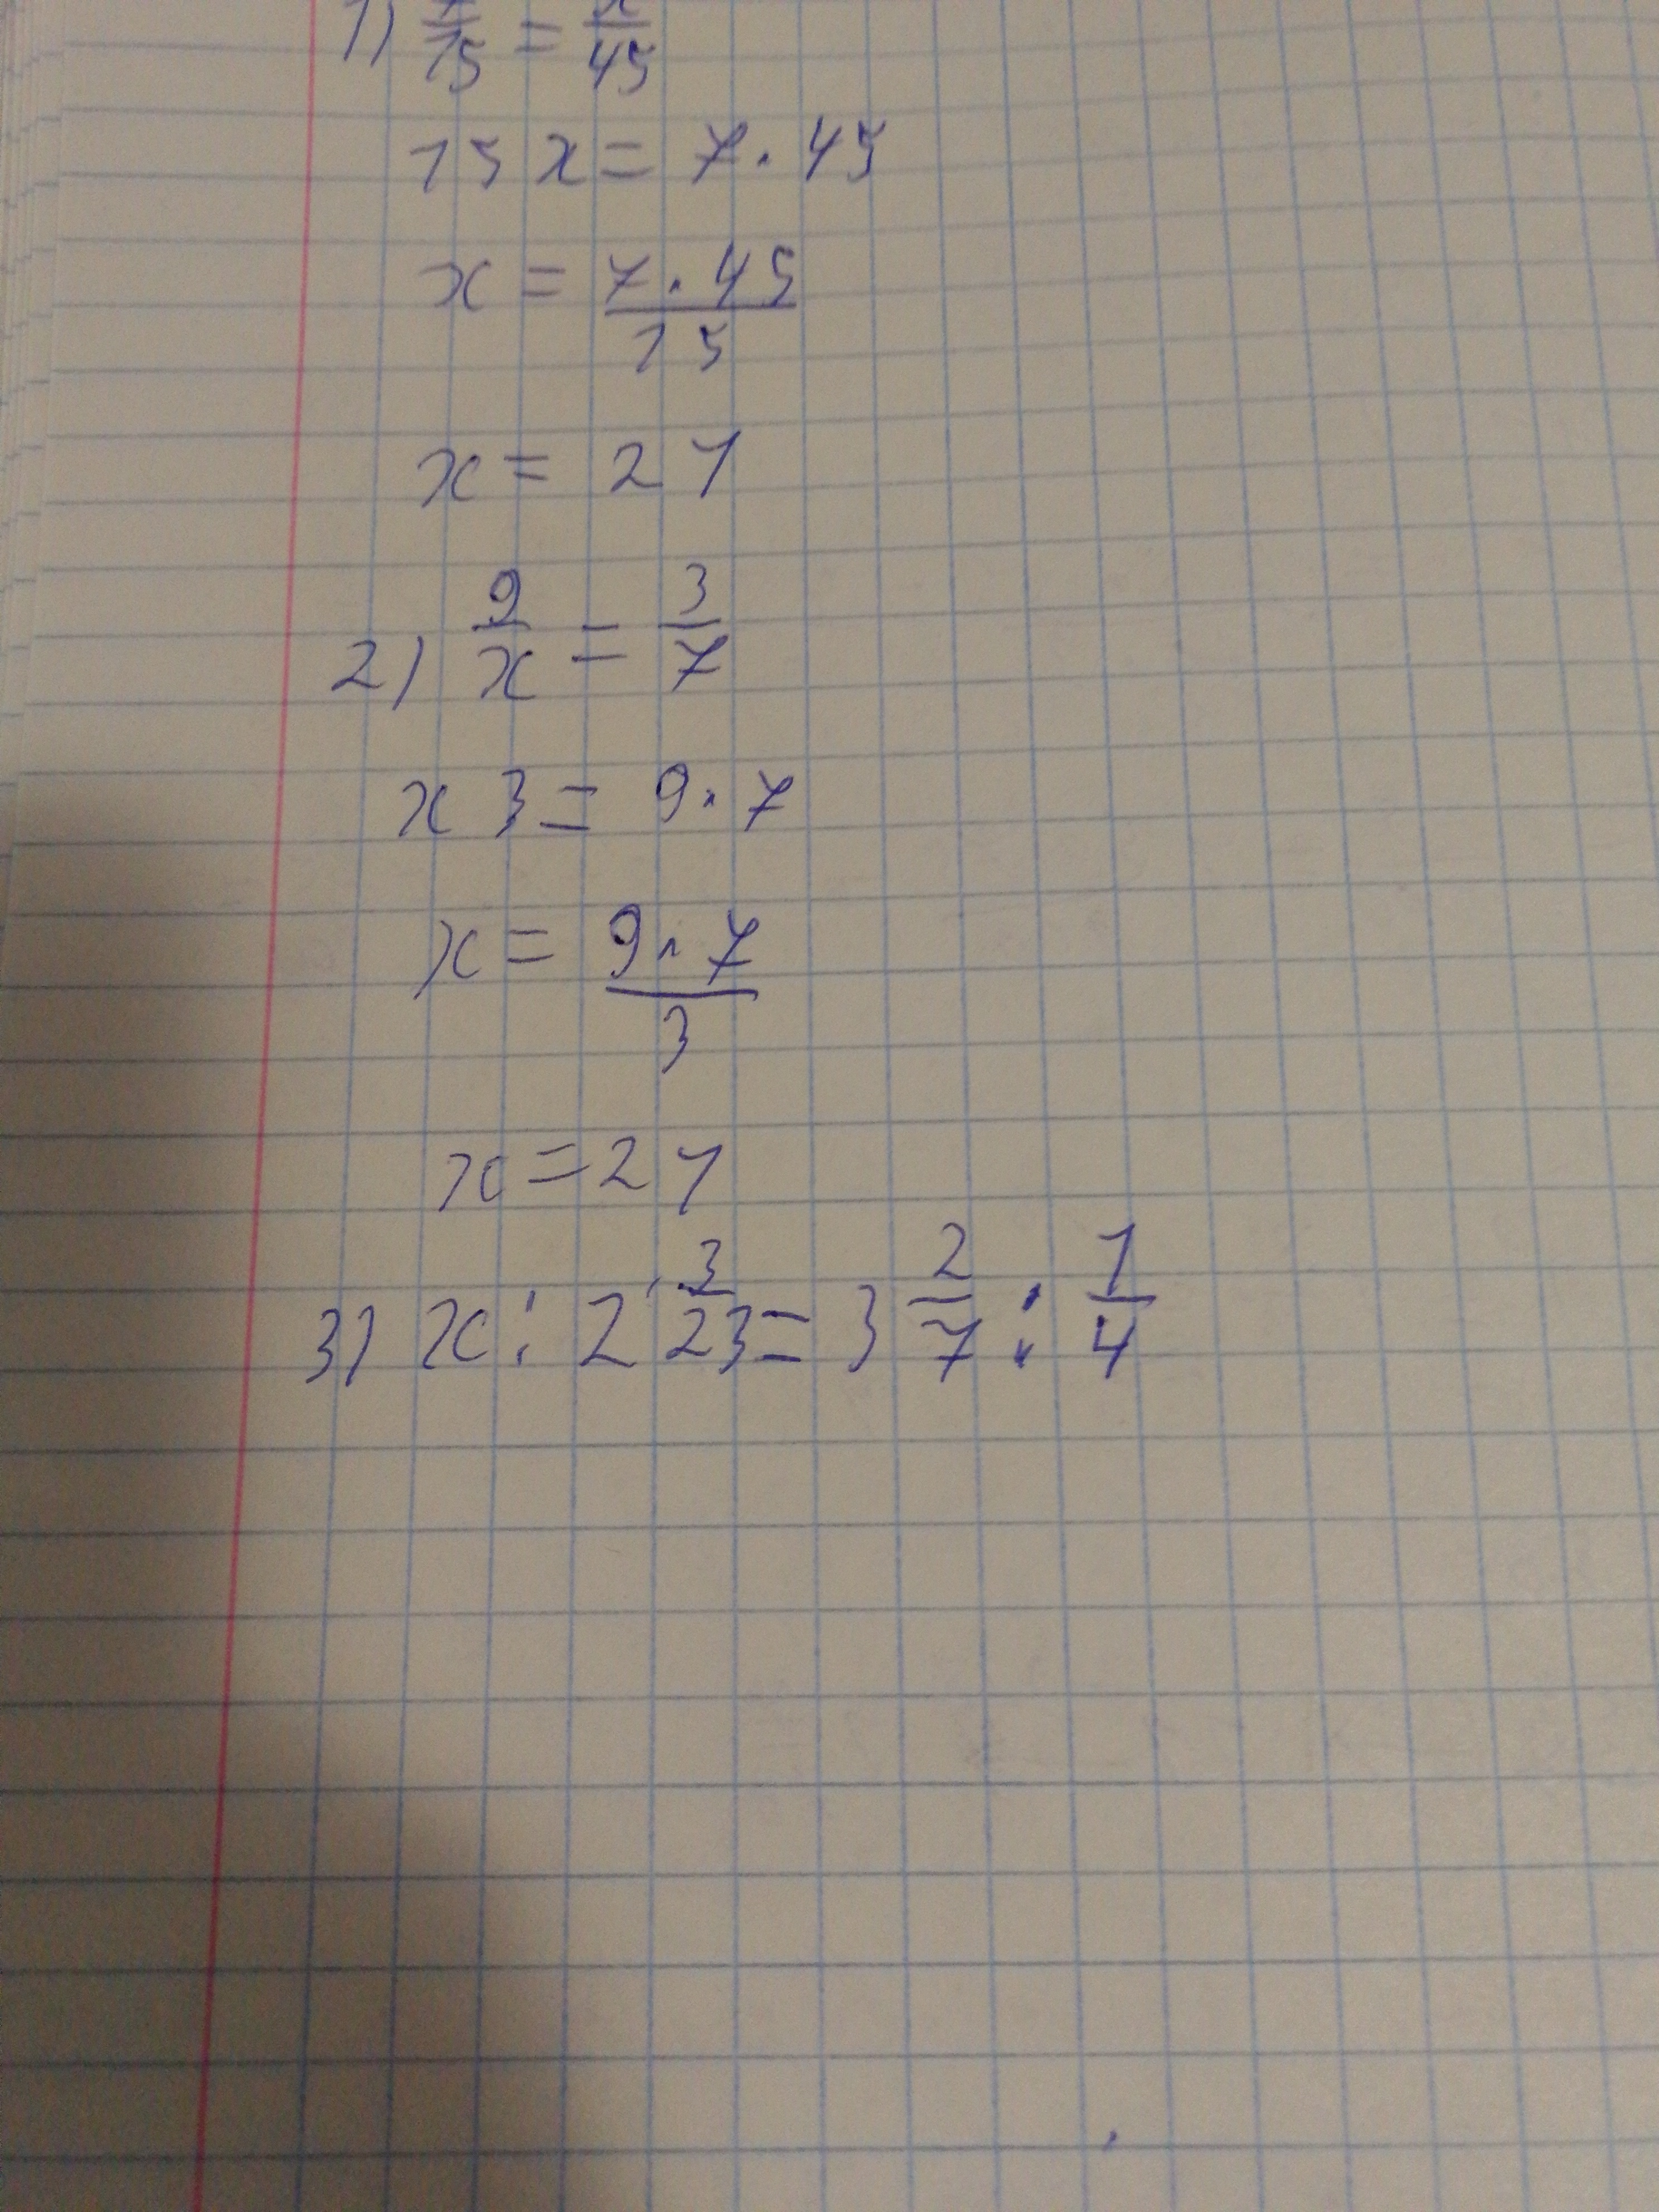 1) 7/15 = x/45
15x = 7 · 45
x = 7 · 45/15
x = 21
2) 9/x = 3/7
x3 = 9 · 7
x = 9 · 7/3
x = 21
3) x : 2 3/23 = 3 2/7 : 1/4